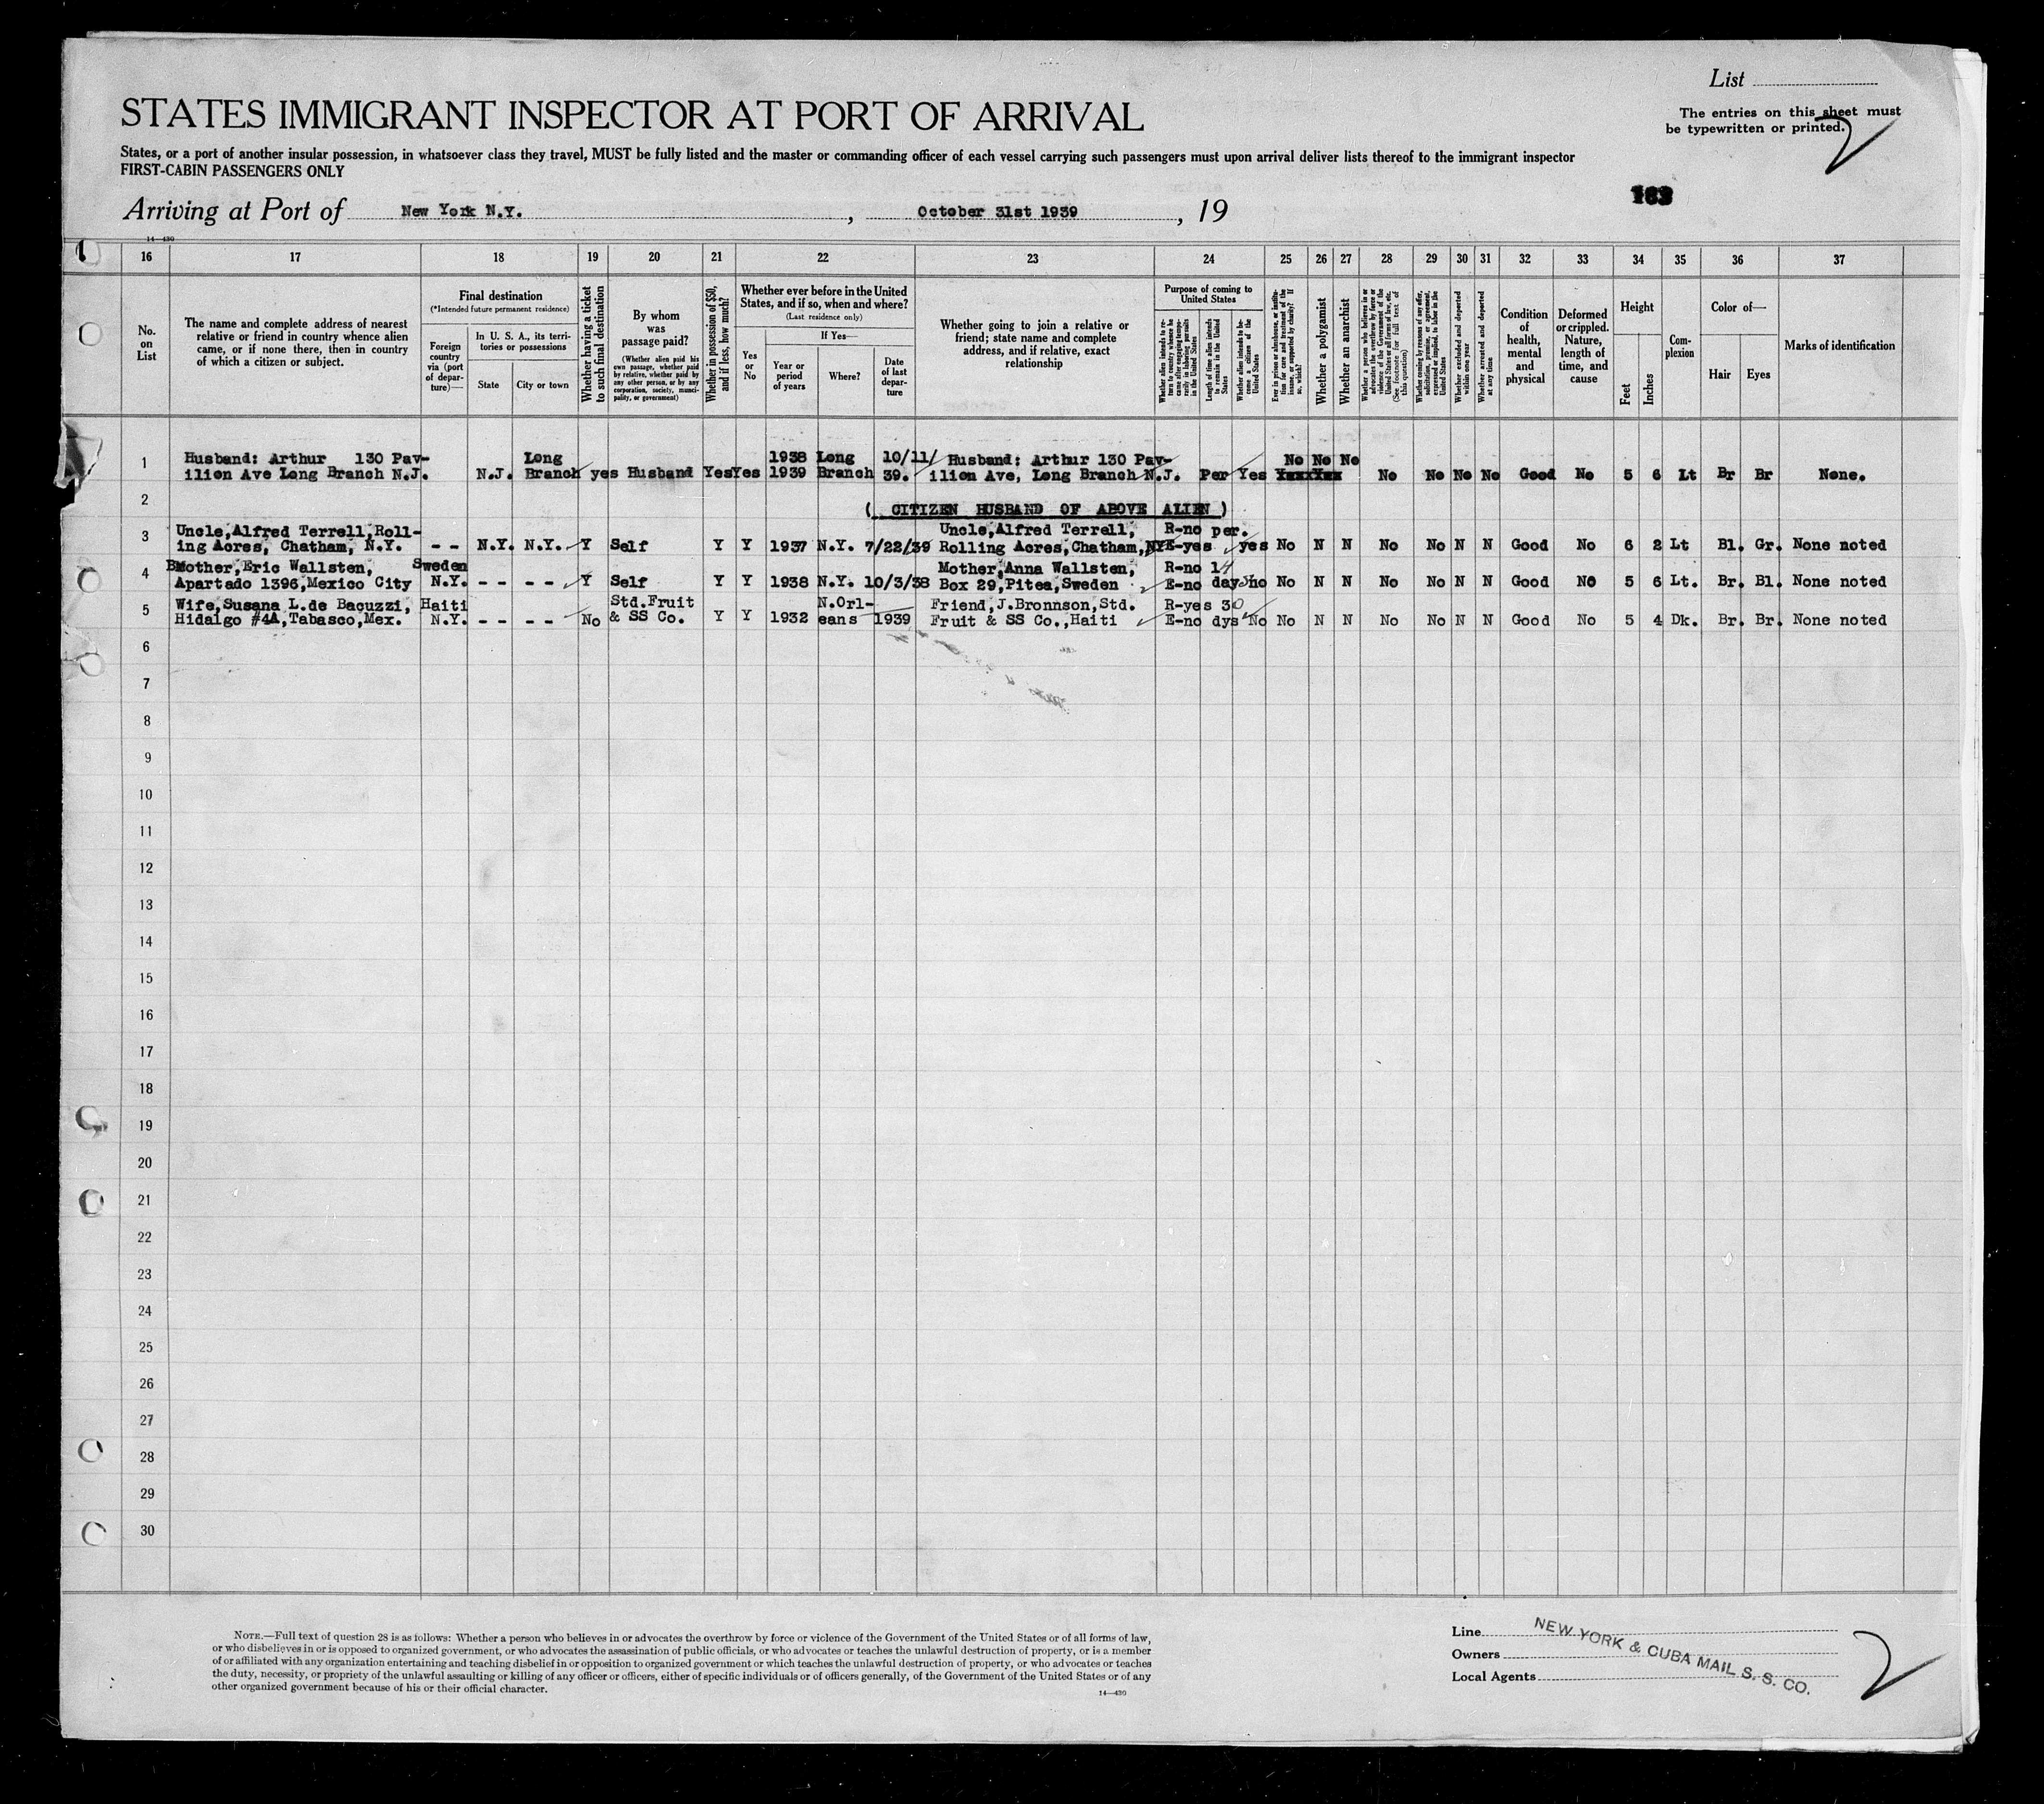 List
The entries on this sheet must
be typewritten or printed.
2
STATES IMMIGRANT INSPECTOR AT PORT OF ARRIVAL
States, or a port of another insular possession, in whatsoever class they travel, MUST be fully listed and the master or commanding officer of each vessel carrying such passengers must upon arrival deliver lists thereof to the immigrant inspector
FIRST-CABIN PASSENGERS ONLY
Arriving at Port of New York N.Y. , October 31st 1939 , 19
14—430
16 17 18 19 20 21 22 23 24 25 26 27 28 29 30 31 32 33 34 35 36 37
No. on List
The name and complete address of nearest
relative or friend in country whence alien
came, or if none there, then in country
of which a citizen or subject.
Final destination
(*Intended future permanent residence)
Foreign country via (port of departure)—
In U. S. A., its territories or possessions
State
City or town
Whether having a ticket to such final destination
By whom was passage paid?
(Whether alien paid his own passage, whether paid by relative, whether paid by any other person, or by any corporation, society, municipality, or government)
Whether in possession of $50, and if less, how much?
Whether ever before in the United States, and if so, when and where?
(Last residence only)
Yes or No
If Yes—
Year or period of years
Where?
Date of last departure
Whether going to join a relative or
friend; state name and complete
address, and if relative, exact
relationship
Purpose of coming to United States
Whether alien intends to return to country whence he came after engaging temporarily in laboring pursuits in the United States
Length of time alien intends to remain in the United States
Whether alien intends to become a citizen of the United States
Ever in prison or almshouse, or institution for care and treatment of the insane, or supported by charity? If so, which?
Whether a polygamist
Whether an anarchist
Whether a person who believes in or advocates the overthrow by force or violence of the Government of the United States or all forms of law, etc. (See footnote for full text of this question)
Whether coming by reasons of any offer, solicitation, promise, or agreement, expressed or implied, to labor in the United States
Whether excluded and deported within one year
Whether arrested and deported at any time
Condition of health, mental and physical
Deformed or crippled. Nature, length of time, and cause
Height
Feet
Inches
Complexion
Color of—
Hair
Eyes
Marks of identification
1 Husband: Arthur 130 Pav- Long 1938 Long 10/11/ Husband: Arthur 130 Pav- No No No
ilion Ave Long Branch N.J. N.J. Branch yes Husband Yes Yes 1939 Branch 39. ilion Ave, Long Branch N.J. Per Yes No No No No Good No 5 6 Lt Br Br None.
2 ( CITIZEN HUSBAND OF ABOVE ALIEN )
3 Uncle,Alfred Terrell,Roll- Uncle,Alfred Terrell, R-no per.
ing Acres, Chatham, N.Y. - - N.Y. N.Y. Y Self Y Y 1937 N.Y. 7/22/39 Rolling Acres,Chatham,NY E-yes yes No N N No No N N Good No 6 2 Lt Bl. Gr. None noted
4 Brother,Eric Wallsten, Sweden Mother,Anna Wallsten, R-no 14
Apartado 1396,Mexico City N.Y. - - - - Y Self Y Y 1938 N.Y. 10/3/38 Box 29,Pitea,Sweden E-no days no No N N No No N N Good No 5 6 Lt. Br. Bl. None noted
5 Wife,Susana L.de Bacuzzi, Haiti Std.Fruit N.Orl- Friend,J.Bronnson,Std. R-yes 30
Hidalgo #4A,Tabasco,Mex. N.Y. - - - - No & SS Co. Y Y 1932 eans 1939 Fruit & SS Co.,Haiti E-no dys No No N N No No N N Good No 5 4 Dk. Br. Br. None noted
6
7
8
9
10
11
12
13
14
15
16
17
18
19
20
21
22
23
24
25
26
27
28
29
30
NOTE.—Full text of question 28 is as follows: Whether a person who believes in or advocates the overthrow by force or violence of the Government of the United States or of all forms of law,
or who disbelieves in or is opposed to organized government, or who advocates the assassination of public officials, or who advocates or teaches the unlawful destruction of property, or is a member
of or affiliated with any organization entertaining and teaching disbelief in or opposition to organized government or which teaches the unlawful destruction of property, or who advocates or teaches
the duty, necessity, or propriety of the unlawful assaulting or killing of any officer or officers, either of specific individuals or of officers generally, of the Government of the United States or of any
other organized government because of his or their official character.
14—430
Line
Owners
Local Agents
NEW YORK & CUBA MAIL S. S. CO.
2